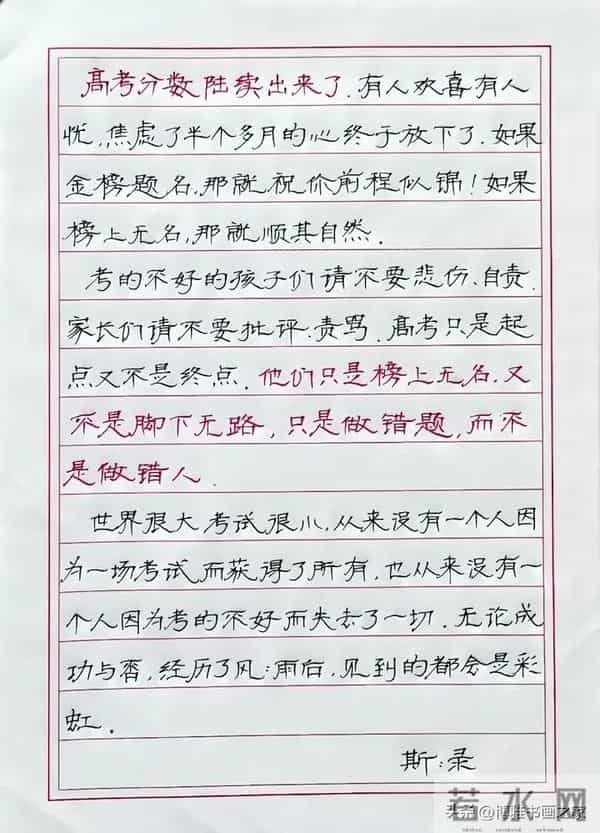 高考分数陆续出来了.有人欢喜有人
忧,焦虑了半个多月的心终于放下了.如果
金榜题名,那就祝你前程似锦!如果
榜上无名,那就顺其自然.
考的不好的孩子们请不要悲伤、自责.
家长们请不要批评、责骂.高考只是起
点又不是终点.他们只是榜上无名,又
不是脚下无路,只是做错题,而不
是做错人.
世界很大考试很小,从来没有一个人因
为一场考试而获得了所有,也从来没有一
个人因为考的不好而失去了一切.无论成
功与否,经历了风:雨后,见到的都会是彩
虹.
斯:录
若水网
头条@博雅书画之家